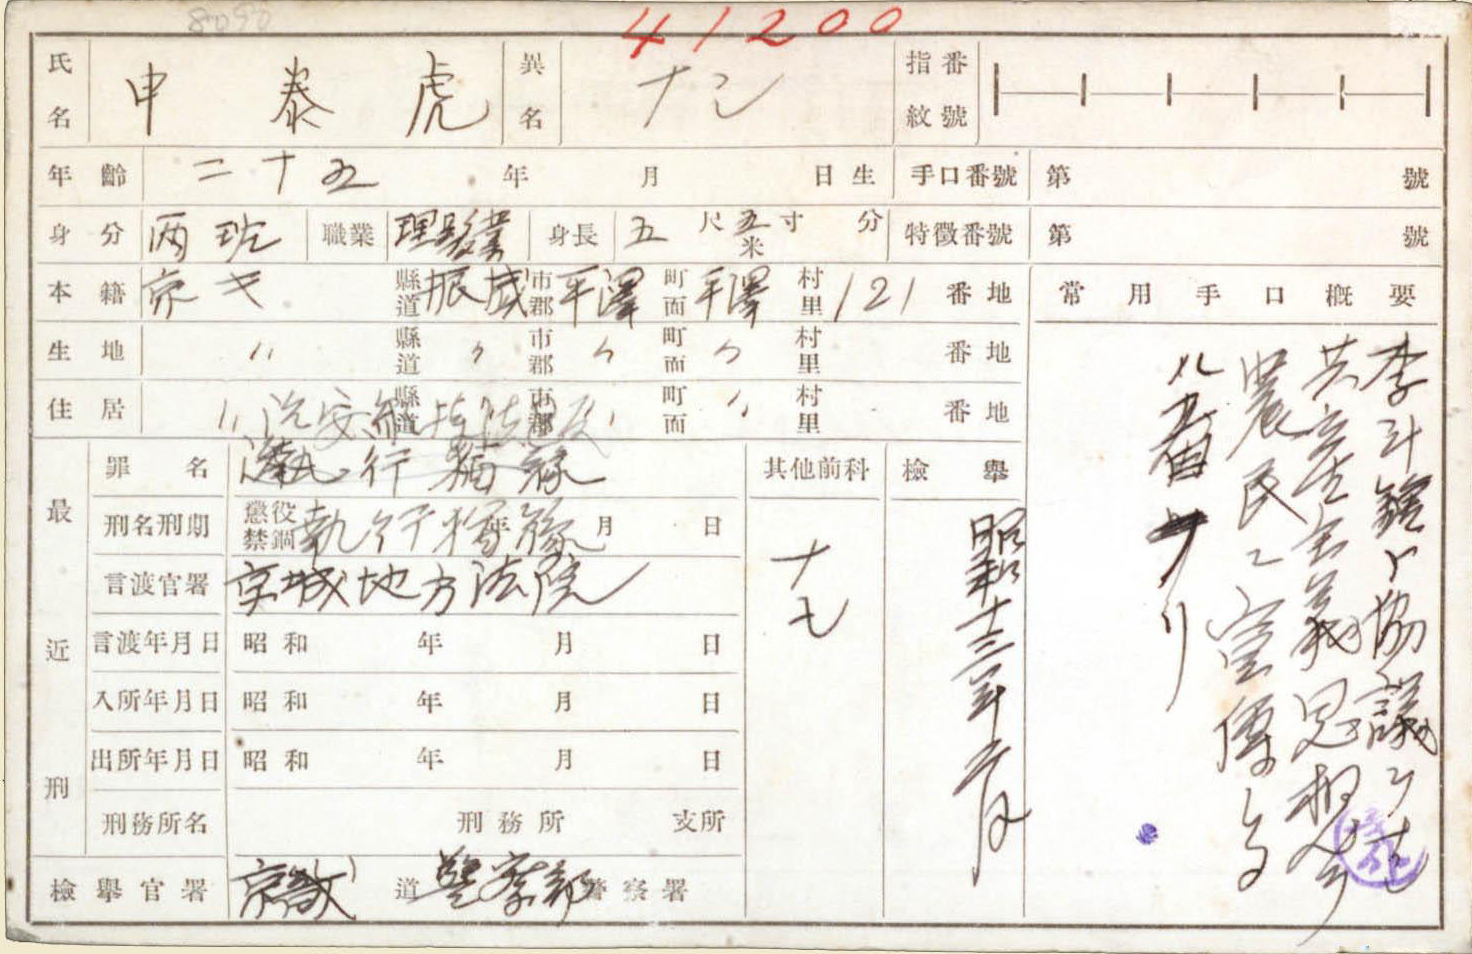 8090
41200
氏名 申 泰 虎 異名 ナシ 指紋番號
年齡 二十五 年 月 日生 手口番號 第 號
身分 両班 職業 理髮業 身長 五尺五寸 分 米 特徵番號 第 號
本籍 京キ 縣道 振威 市郡 平澤 町面 平澤 村里 121 番地
生地 〃 縣道 〃 市郡 〃 町面 〃 村里 番地
住居 〃 縣道 市郡 〃 町面 〃 村里 番地
治安維持法
最近刑
罪名 執行猶豫
刑名刑期 懲役 禁錮 執行猶豫 年 月 日
言渡官署 京城地方法院
言渡年月日 昭和 年 月 日
入所年月日 昭和 年 月 日
出所年月日 昭和 年 月 日
刑務所名 刑務所 支所
檢擧官署 京畿 道 警察部 警察署
其他前科
ナシ
檢擧
昭和十三年二月
常用手口概要
李斗鎔ト協議シ
共産主義思想ヲ
農民ニ宣傳